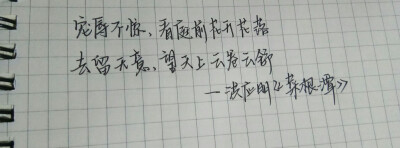 宠辱不惊，看庭前花开花落
去留无意，望天上云卷云舒
—洪应明《菜根谭》